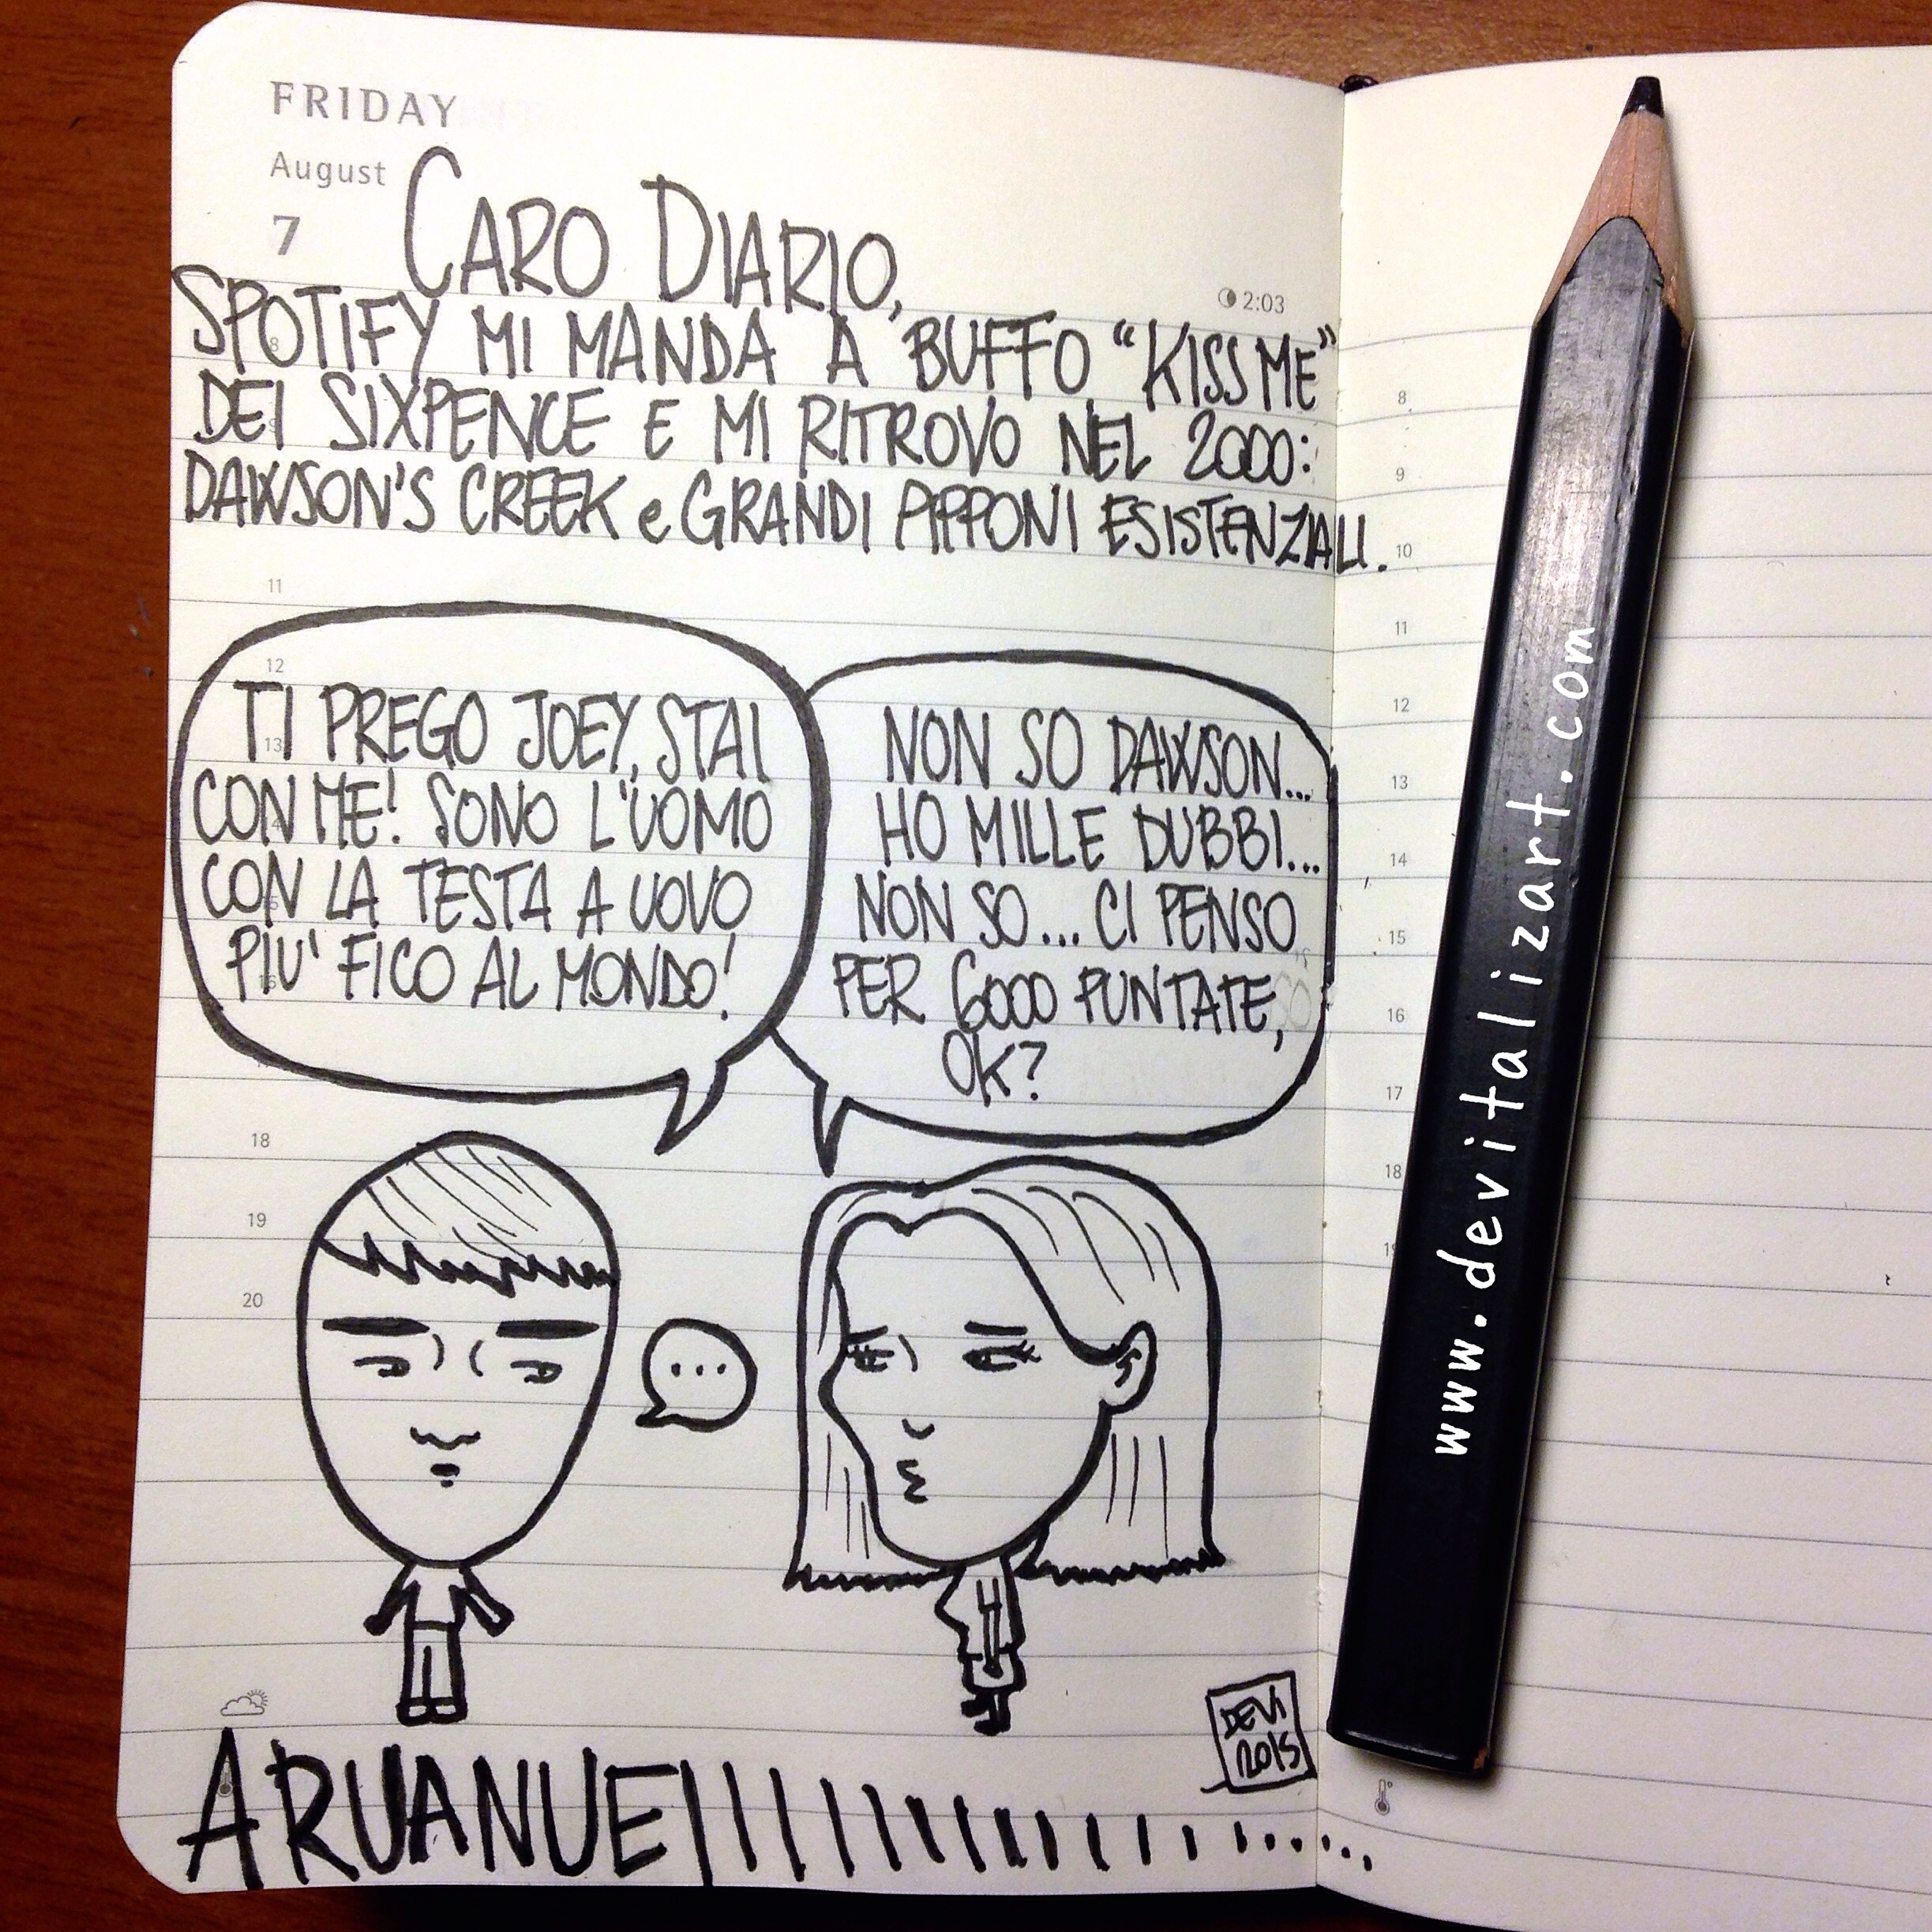 FRIDAY
August
7
CARO DIARIO,
2:03
SPOTIFY MI MANDA A BUFFO "KISS ME"
DEI SIXPENCE E MI RITROVO NEL 2000:
DAWSON'S CREEK e GRANDI PIPPONI ESISTENZIALI.
TI PREGO JOEY, STAI
CON ME! SONO L'UOMO
CON LA TESTA A UOVO
PIU' FICO AL MONDO!
NON SO DAWSON...
HO MILLE DUBBI...
NON SO... CI PENSO
PER 6000 PUNTATE,
OK?
...
DEVI
2015
ARUANUEIIIIIIIIIIIIIII.....
8
11
12
13
18
19
20
8
9
10
11
12
13
14
15
16
17
18
www.devitalizart.com